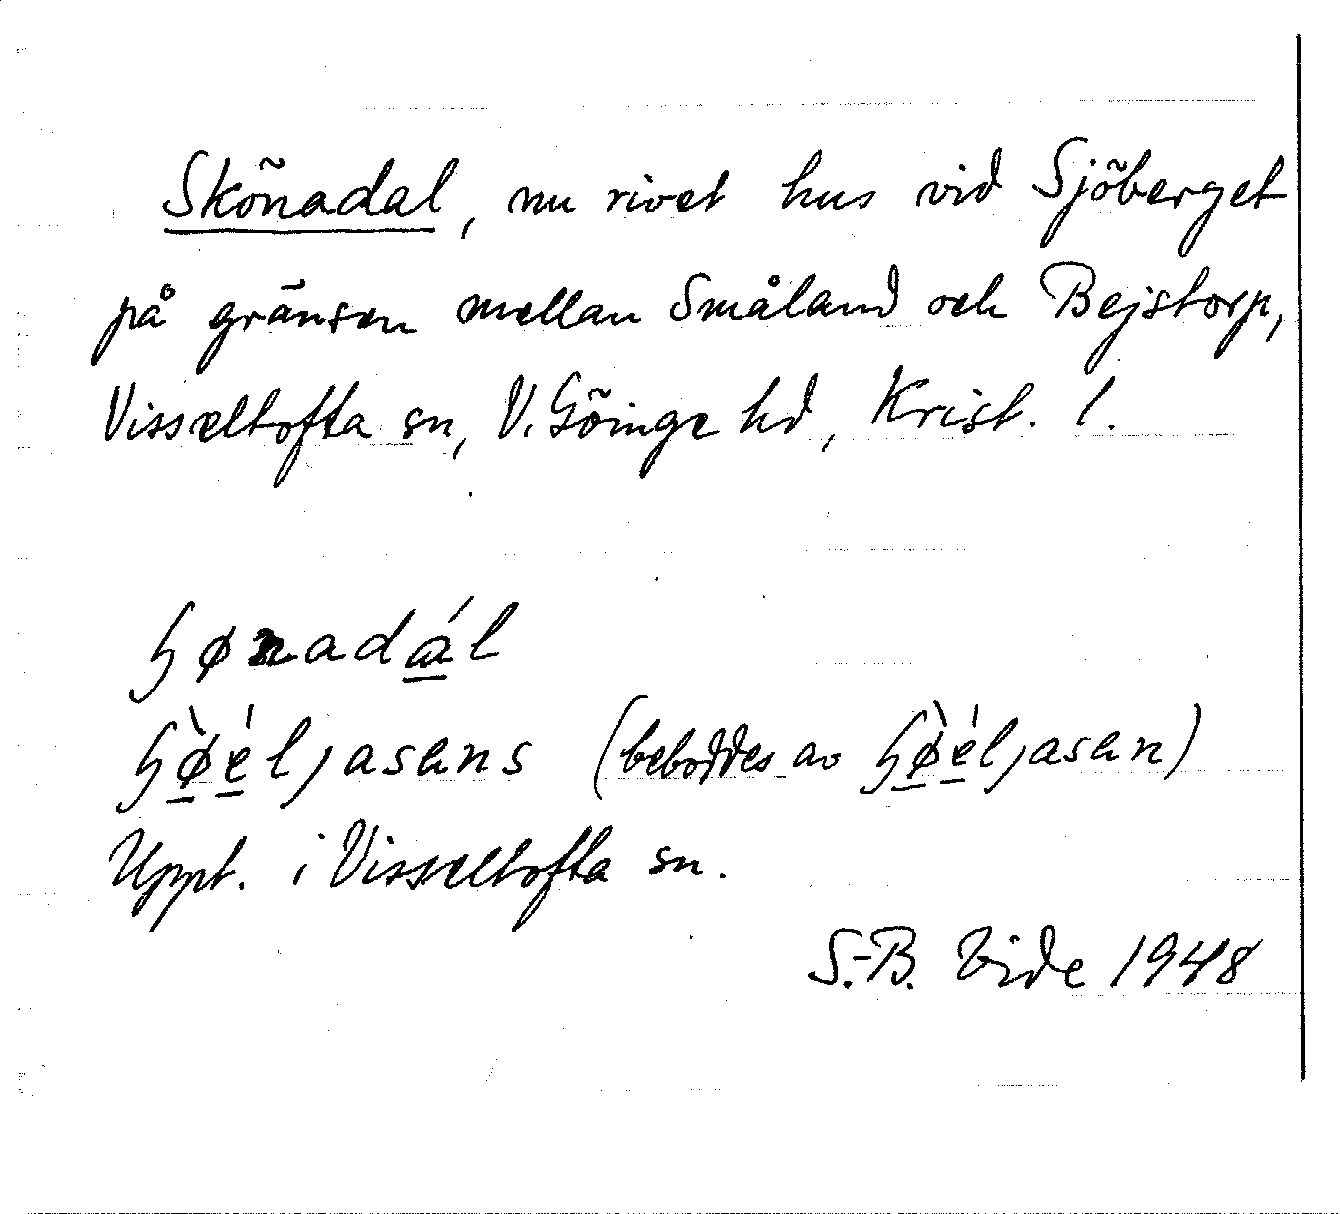 Skönadal, nu rivet hus vid Sjöberget
på gränsen mellan Småland och Bejstorp,
Visseltofta sn, V. Göinge hd, Krist. l.
ɧønadál
ɧø̀éljasens (beboddes av ɧø̀éljasen)
Uppt. i Visseltofta sn.
S.-B. Vide 1948